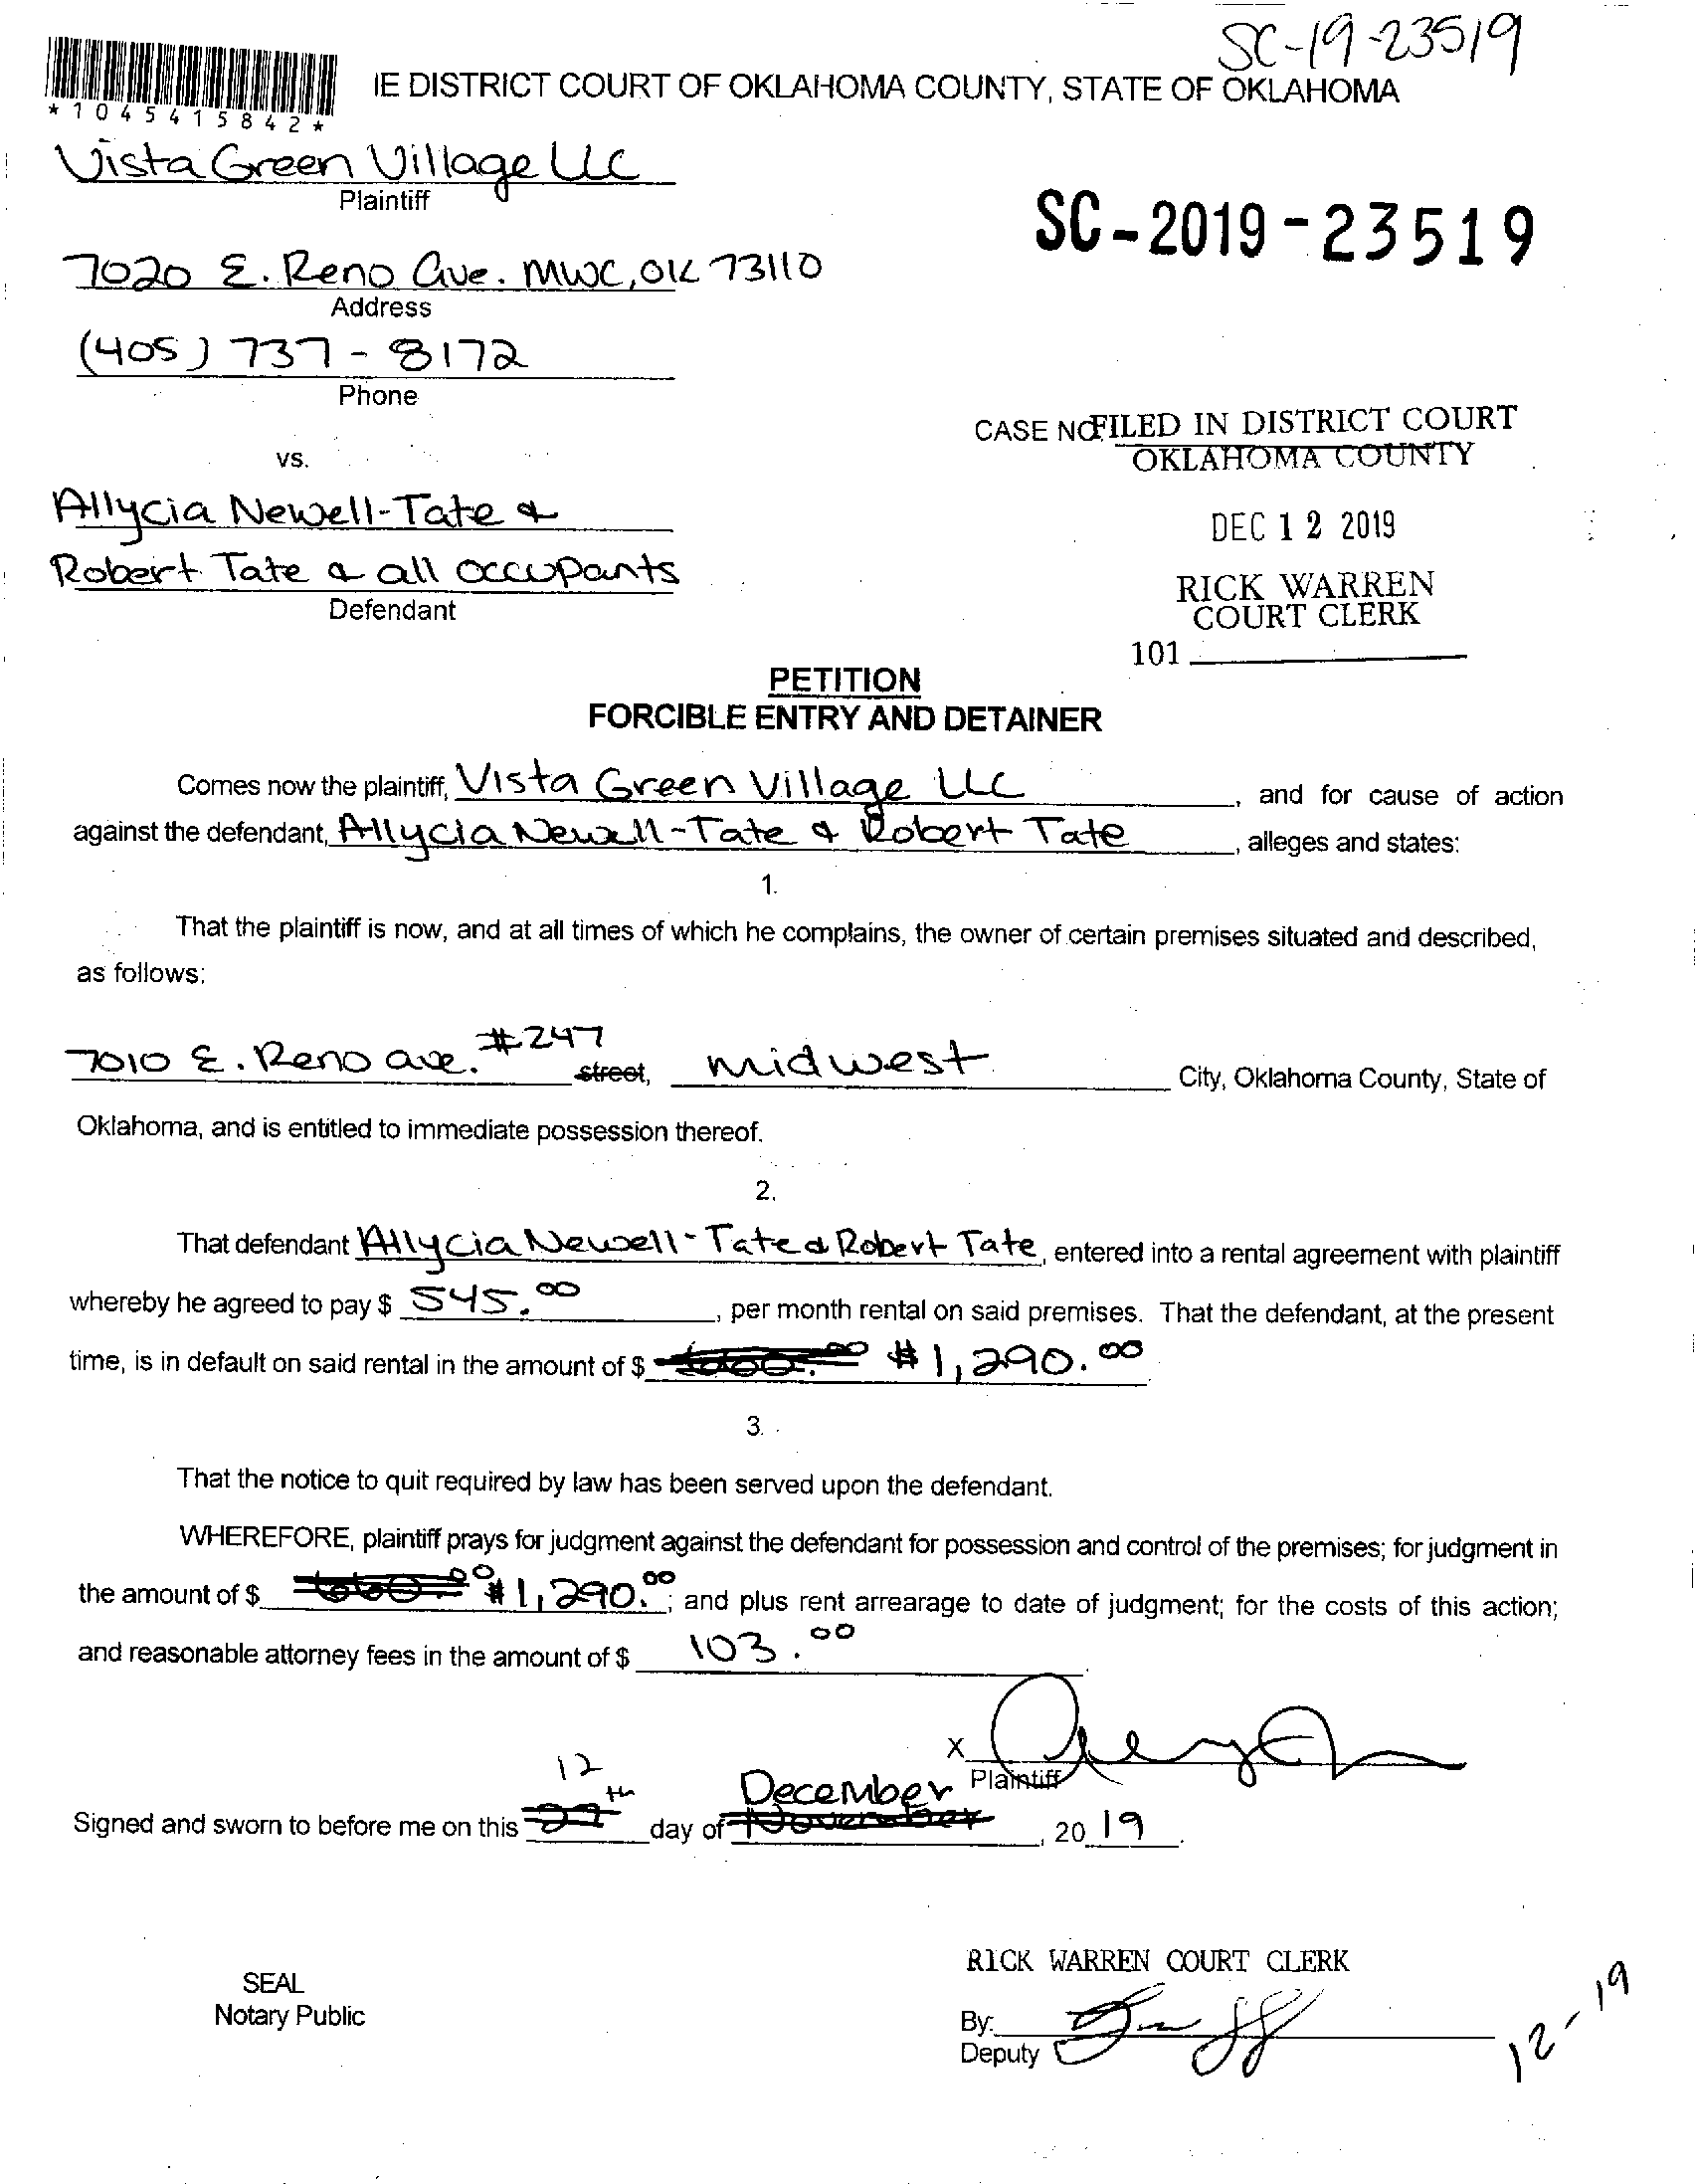 SC-19-23519
IE DISTRICT COURT OF OKLAHOMA COUNTY, STATE OF OKLAHOMA
*1045415842*
Vista Green Village LLC
Plaintiff
SC-2019-23519
7020 E. Reno Ave. MWC, OK 73110
Address
(405) 737-8172
Phone
CASE NO FILED IN DISTRICT COURT
OKLAHOMA COUNTY
vs.
Allycia Newell-Tate &
DEC 12 2019
Robert Tate & all occupants
RICK WARREN
Defendant
COURT CLERK
101
PETITION
FORCIBLE ENTRY AND DETAINER
Comes now the plaintiff, Vista Green Village LLC, and for cause of action
against the defendant, Allycia Newell-Tate & Robert Tate, alleges and states:
1.
That the plaintiff is now, and at all times of which he complains, the owner of certain premises situated and described,
as follows:
7010 E. Reno ave. #247 street, midwest City, Oklahoma County, State of
Oklahoma, and is entitled to immediate possession thereof.
2.
That defendant Allycia Newell-Tate & Robert Tate, entered into a rental agreement with plaintiff
whereby he agreed to pay $ 545.00, per month rental on said premises. That the defendant, at the present
time, is in default on said rental in the amount of $ #1,290.00
3.
That the notice to quit required by law has been served upon the defendant.
WHEREFORE, plaintiff prays for judgment against the defendant for possession and control of the premises; for judgment in
the amount of $ #1,290.00; and plus rent arrearage to date of judgment; for the costs of this action;
and reasonable attorney fees in the amount of $ 103.00
X
Plaintiff
Signed and sworn to before me on this 12th day of December, 2019.
RICK WARREN COURT CLERK
SEAL
Notary Public
By:
Deputy
12-19